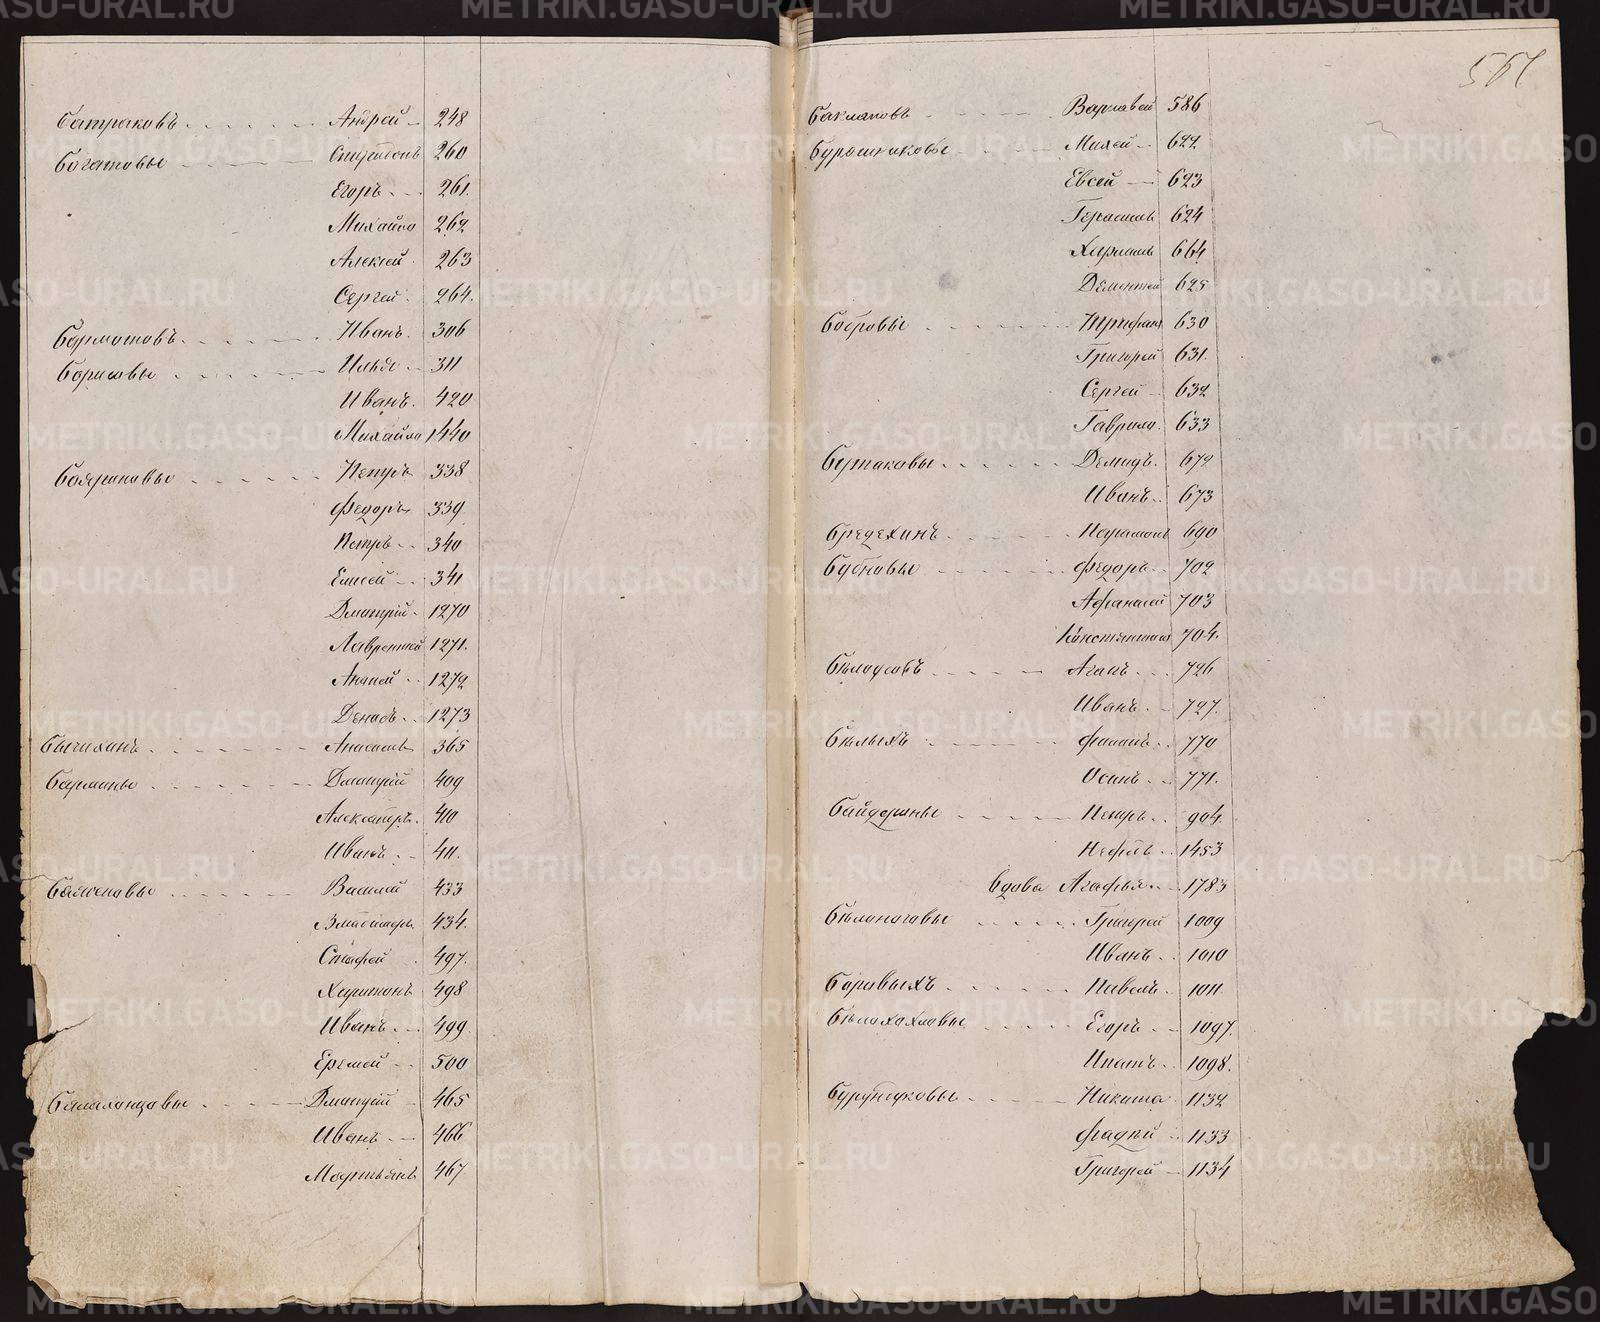 Батраковъ Андрей 248
Богатовы Спиридонъ 260
Егоръ 261.
Михайло 262
Алексей 263
Сергей 264.
Бормотовъ Иванъ 306
Борисовы Илья 311
Иванъ 420
Михайло 1440
Бояриновы Петръ 338
Федоръ 339
Петръ 340
Елисей 341
Дмитрій 1270
Лаврентей 1271.
Ананей 1272
Денисъ 1273
365
Бармины Дмитрій 409
Александръ 410
Иванъ 411.
Баженовы Василей 433
434.
497.
Харитонъ 498
Иванъ 499
Еремей 500
Дмитрій 465
Иванъ 466
Мартьянъ 467
Баклановъ Варлавей 586
622
Евсей 623
Герасимъ 624
664
Дементей 625
Бобровы Трифанъ 630
Григорей 631.
Сергей 632
Гаврило 633
Бутаковы Демидъ 672
Иванъ 673
Бредехинъ Парамонъ 690
Бубновы Федоръ 702
Афанасей 703
Констянтинъ 704.
Бѣлоусовъ 726
Иванъ 727.
Бѣлыхъ 770
Осипъ 771.
Байдерины Петръ 904.
1453
Вдова Агафья 1783
Бѣлоноговы Григорей 1009
Иванъ 1010
Боровыхъ Павелъ 1011
Бѣлохохловы Егоръ 1097.
Ипатъ 1098.
Никита 1132
Фадѣй 1133
Григорей 1134
METRIKI.GASO-URAL.RU